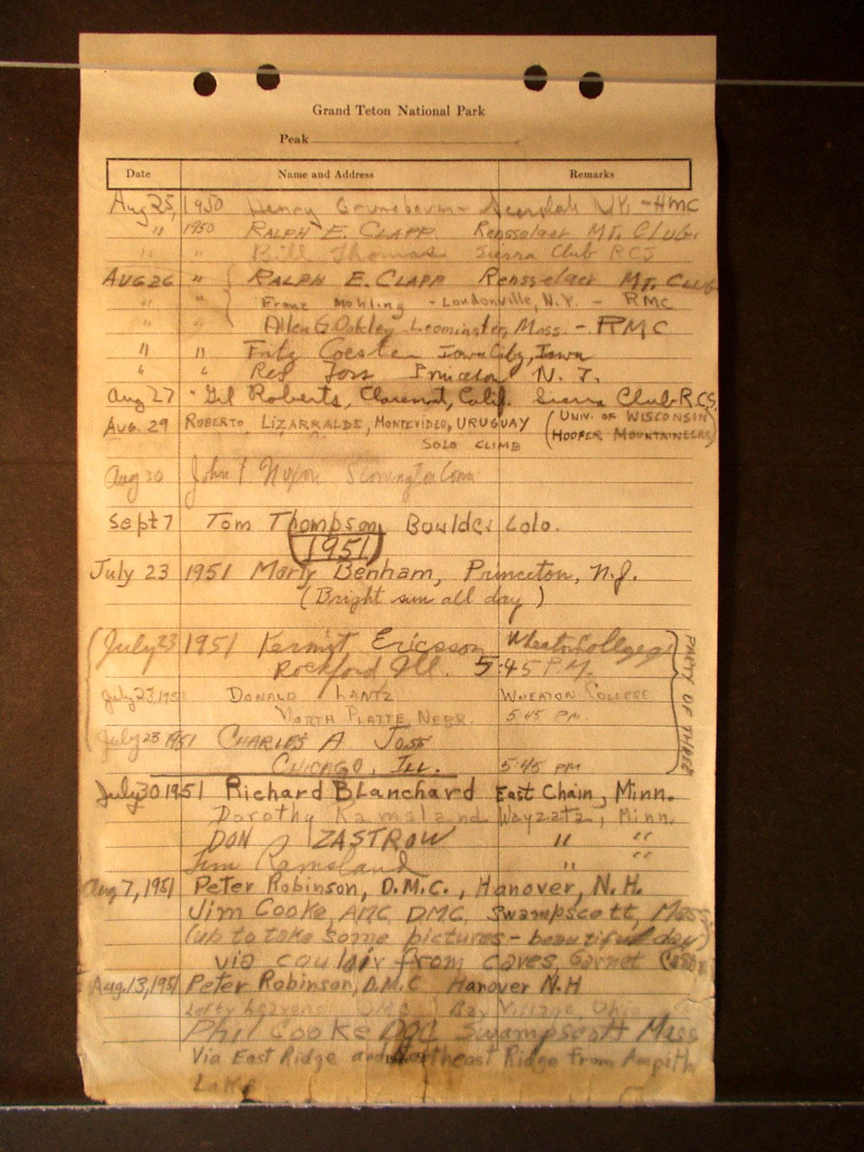 Grand Teton National Park
Peak
Date Name and Address Remarks
Aug 25, 1950 Henry - HMC
" 1950 RALPH E. CLAPP Rensselaer MT. CLUB
" " Bill Thomas Sierra Club RCS
AUG 26 " RALPH E. CLAPP Rensselaer MT. CLUB
" " Franz Mohling - Loudonville, N.Y. - RMC
" " Allen G. Oakley Leominster, Mass. - RMC
" " Fritz Coester Iowa City, Iowa
" " Princeton N.J.
Aug 27 " Gil Roberts, Claremont, Calif. Sierra Club R.C.S.
AUG. 29 ROBERTO LIZARRALDE, MONTEVIDEO, URUGUAY (UNIV. OF WISCONSIN
SOLO CLIMB HOOFER MOUNTAINEERS)
Aug 30 John Nixon Stonington Conn
Sept 7 Tom Thompson, Boulder Colo.
(1951)
July 23 1951 Marty Benham, Princeton, N.J.
(Bright sun all day)
July 23 1951 Kermit Ericsson Wheaton College
Rockford Ill. 5:45 P.M.
July 23, 1951 DONALD LANTZ WHEATON COLLEGE
NORTH PLATTE, NEBR. 5:45 PM.
July 23 1951 CHARLES A JOSS
CHICAGO, ILL. 5:45 PM
PARTY OF THREE
July 30 1951 Richard Blanchard East Chain, Minn.
Dorothy Ramsland Wayzata, Minn.
DON ZASTROW " "
Jim Ramsland " "
Aug 7, 1951 Peter Robinson, D.M.C., Hanover, N.H.
Jim Cooke, AMC DMC, Swampscott, Mass.
(up to take some pictures - beautiful day)
via couloir from caves, Garnet
Aug. 13, 1951 Peter Robinson, D.M.C Hanover N.H
Lefty Leavens DMC Bay Village, Ohio
Phil Cooke DOC Swampscott Mass
Via East Ridge and Northeast Ridge from Ampith
Lake